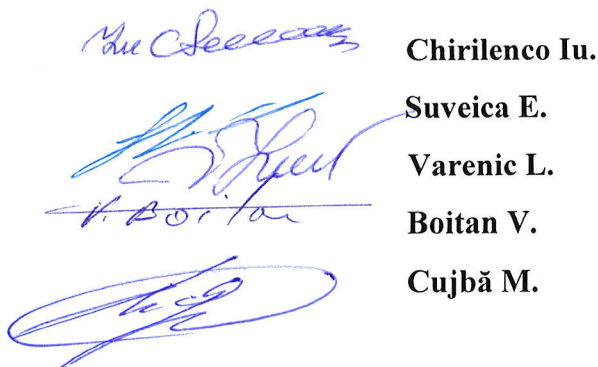 Chirilenco Iu.
Suveica E.
Varenic L.
V. Boitan Boitan V.
Cujbă M.